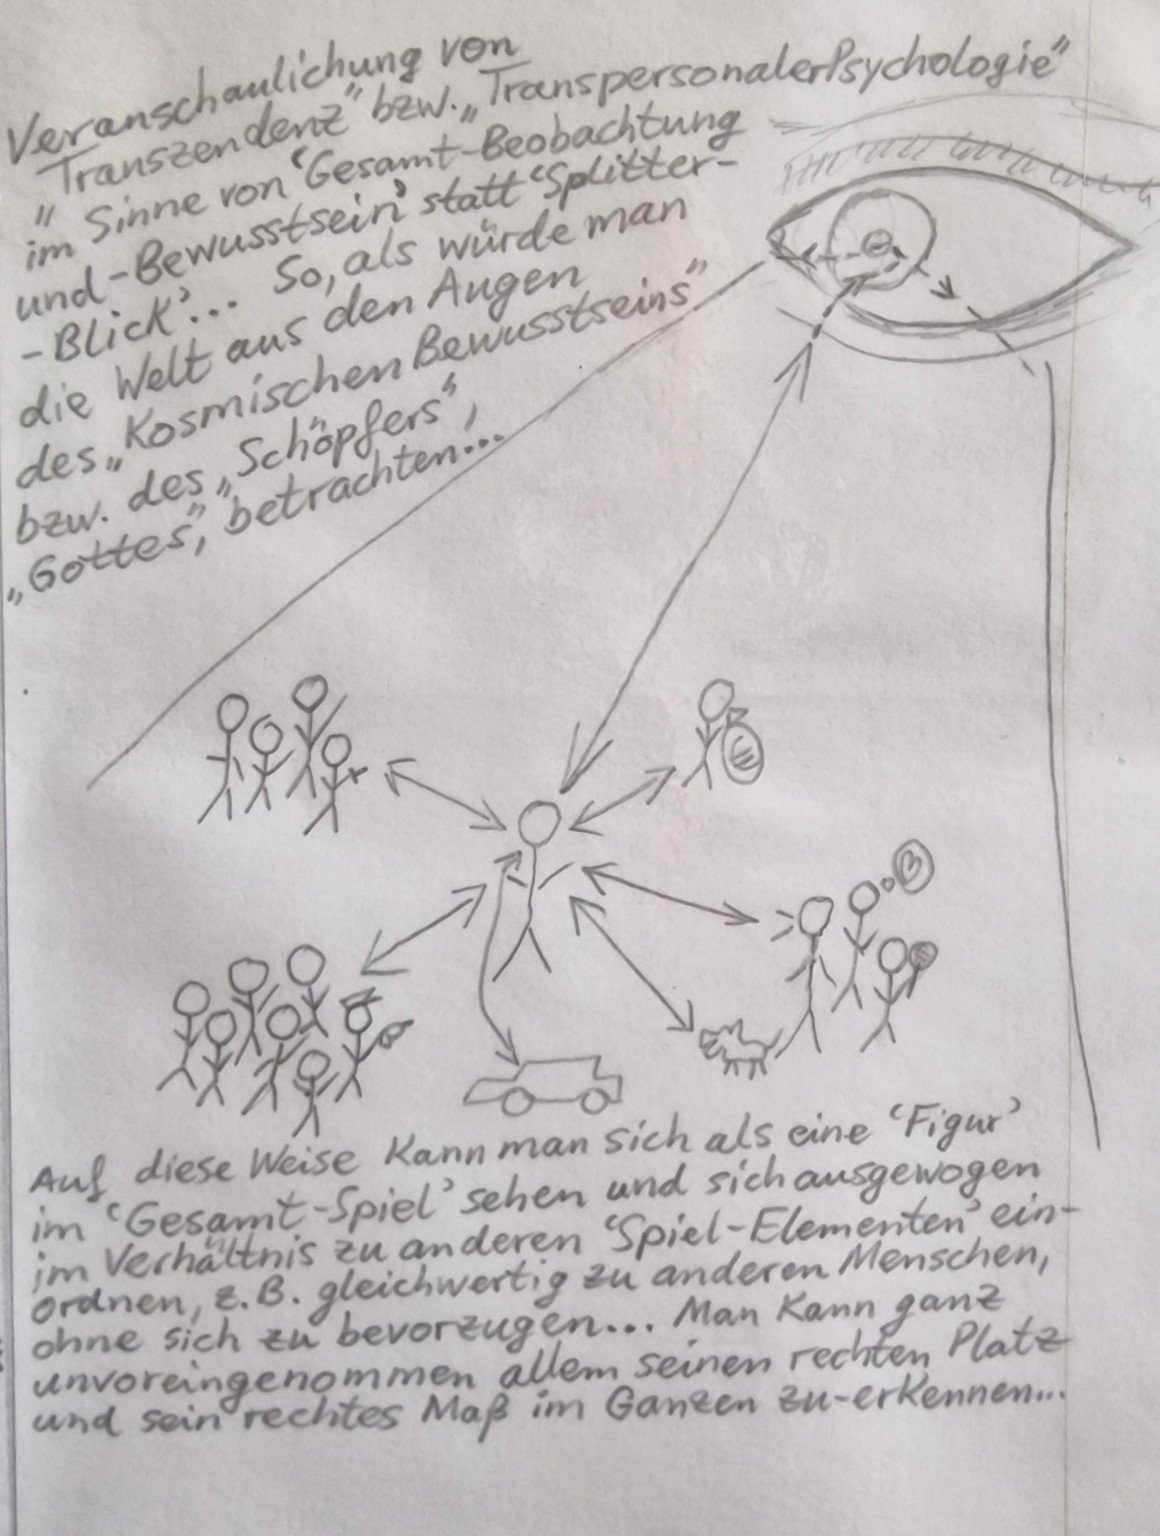 Veranschaulichung von
"Transzendenz" bzw. „Transpersonaler Psychologie"
im Sinne von 'Gesamt-Beobachtung
und -Bewusstsein' statt 'Splitter-
-Blick'... So, als würde man
die Welt aus den Augen
des „Kosmischen Bewusstseins"
bzw. des „Schöpfers",
„Gottes", betrachten...
Auf diese Weise kann man sich als eine 'Figur'
im 'Gesamt-Spiel' sehen und sich ausgewogen
im Verhältnis zu anderen 'Spiel-Elementen' ein-
ordnen, z.B. gleichwertig zu anderen Menschen,
ohne sich zu bevorzugen... Man kann ganz
unvoreingenommen allem seinen rechten Platz
und sein rechtes Maß im Ganzen zu-erkennen...